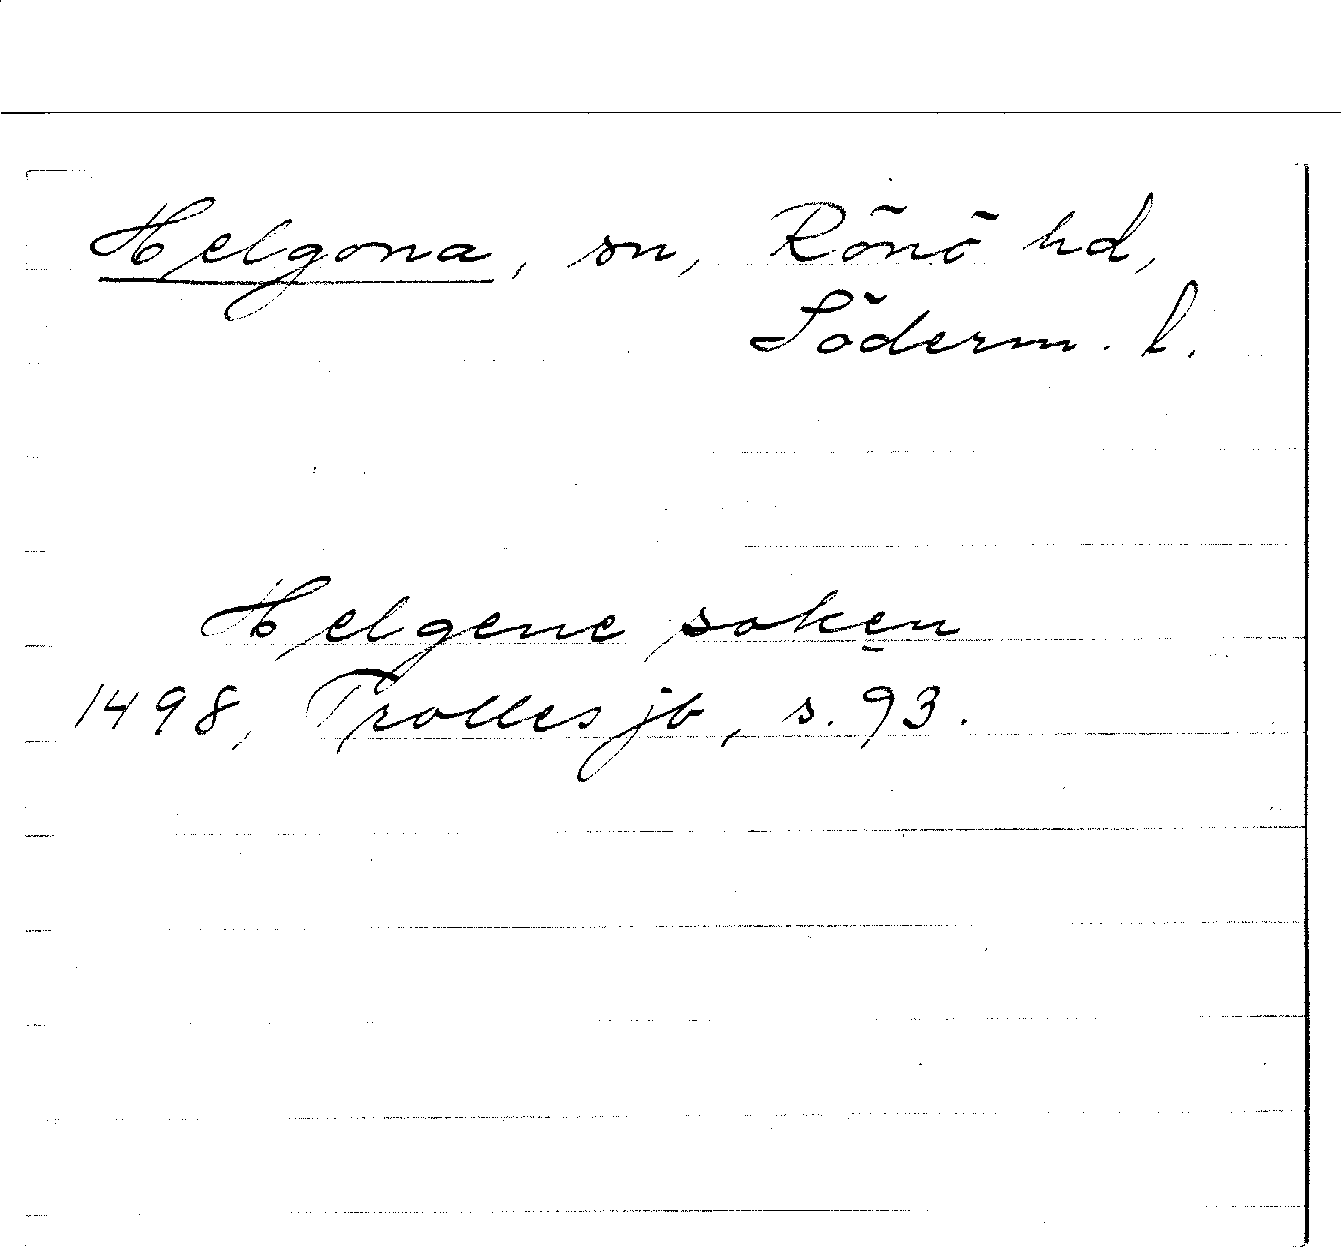 Helgona, sn, Rönö hd,
Söderm. l.
Helgene soken
1498, Trolles jb, s. 93.